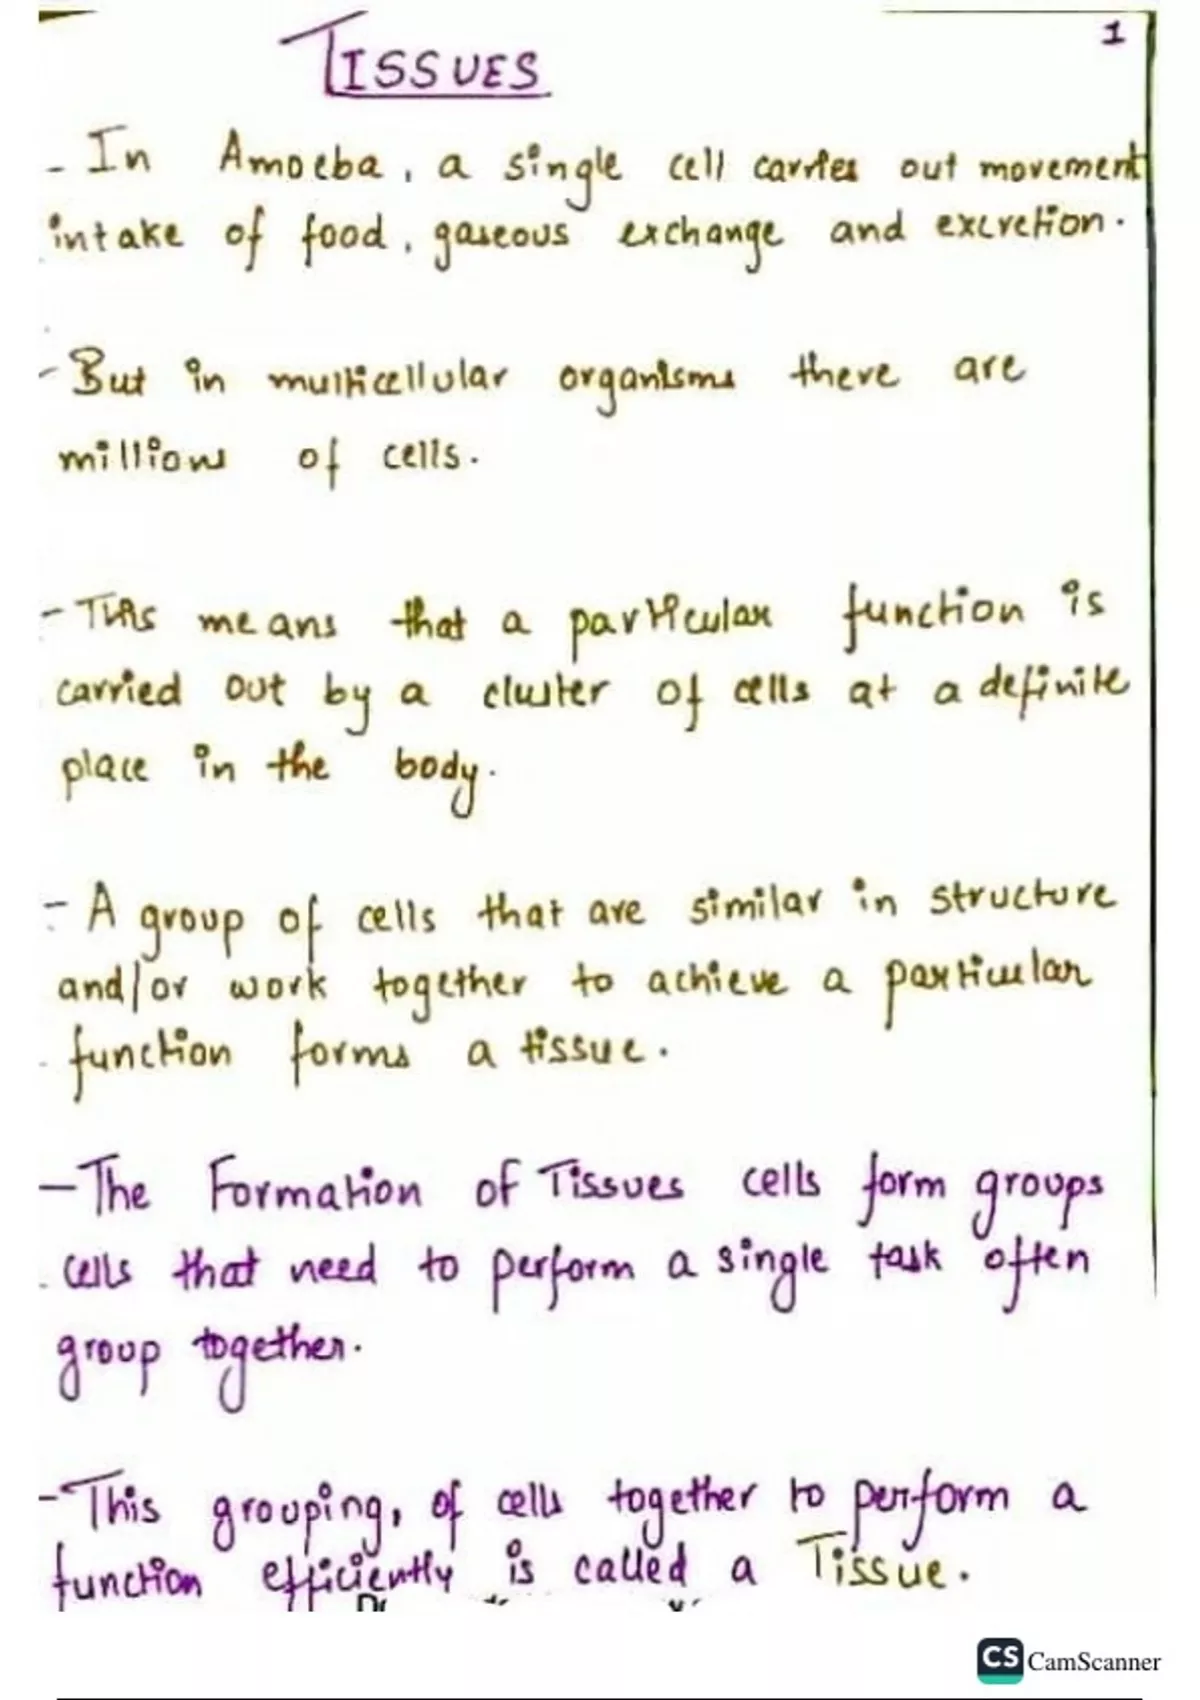 TISSUES
1
- In Amoeba, a single cell carries out movement
intake of food, gaseous exchange and excretion.
- But in multicellular organisms there are
millions of cells.
- This means that a particular function is
carried out by a cluster of cells at a definite
place in the body.
- A group of cells that are similar in structure
and/or work together to achieve a particular
function forms a tissue.
- The Formation of Tissues cells form groups
cells that need to perform a single task often
group together.
- This grouping, of cells together to perform a
function efficiently is called a Tissue.
CS CamScanner